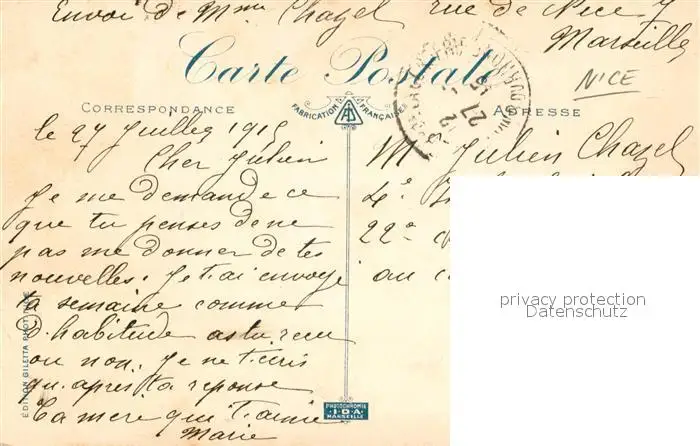 Envoi de Mme Chazel rue de Nice 7
Marseille
Carte Postale
NICE
CORRESPONDANCE
FABRICATION FRANÇAISE
ADRESSE
le 27 Juillet 1915
Cher Julien
Je me demande ce
que tu penses de ne
pas me donner de tes
nouvelles. Je t'ai envoyé
ta semaine comme
d'habitude as tu recu
ou non. Je ne t'ecris
qu'apres ta reponse
Ta mere qui t'aime
Marie
M Julien Chazel
4e
22e
au
EDITION GILETTA PHOT
PHOTOCHROMIE
I·D·A
MARSEILLE
privacy protection
Datenschutz